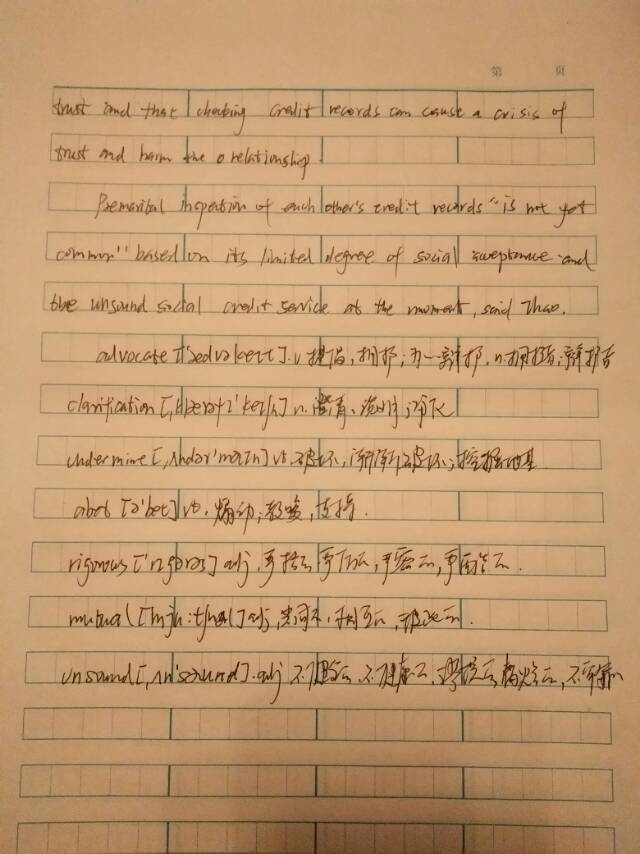 第 页
trust and that checking credit records can cause a crisis of
trust and harm the relationship
Premarital inspection of each other's credit records "is not yet
common" based on its limited degree of social acceptance and
the unsound social credit service at the moment, said Zhao.
advocate ['ædvəkeɪt]. v. 提倡, 拥护; 为…辩护. n. 拥护者; 辩护者
clarification [,klærəfɪ'keɪʃn] n. 澄清, 说明;
undermine [,ʌndər'maɪn] vt. 破坏, 渐渐破坏; 挖掘地基
abet [ə'bet] vt. 煽动; 教唆, 支持.
rigorous ['rɪgərəs] adj. 严格的, 严厉的, 严密的, 严酷的.
mutual ['mju:tʃuəl] adj, 共同的, 相互的, 彼此的.
unsound [,ʌn'saʊnd]. adj 不健全的, 不健康的, 腐烂的, 不可靠的